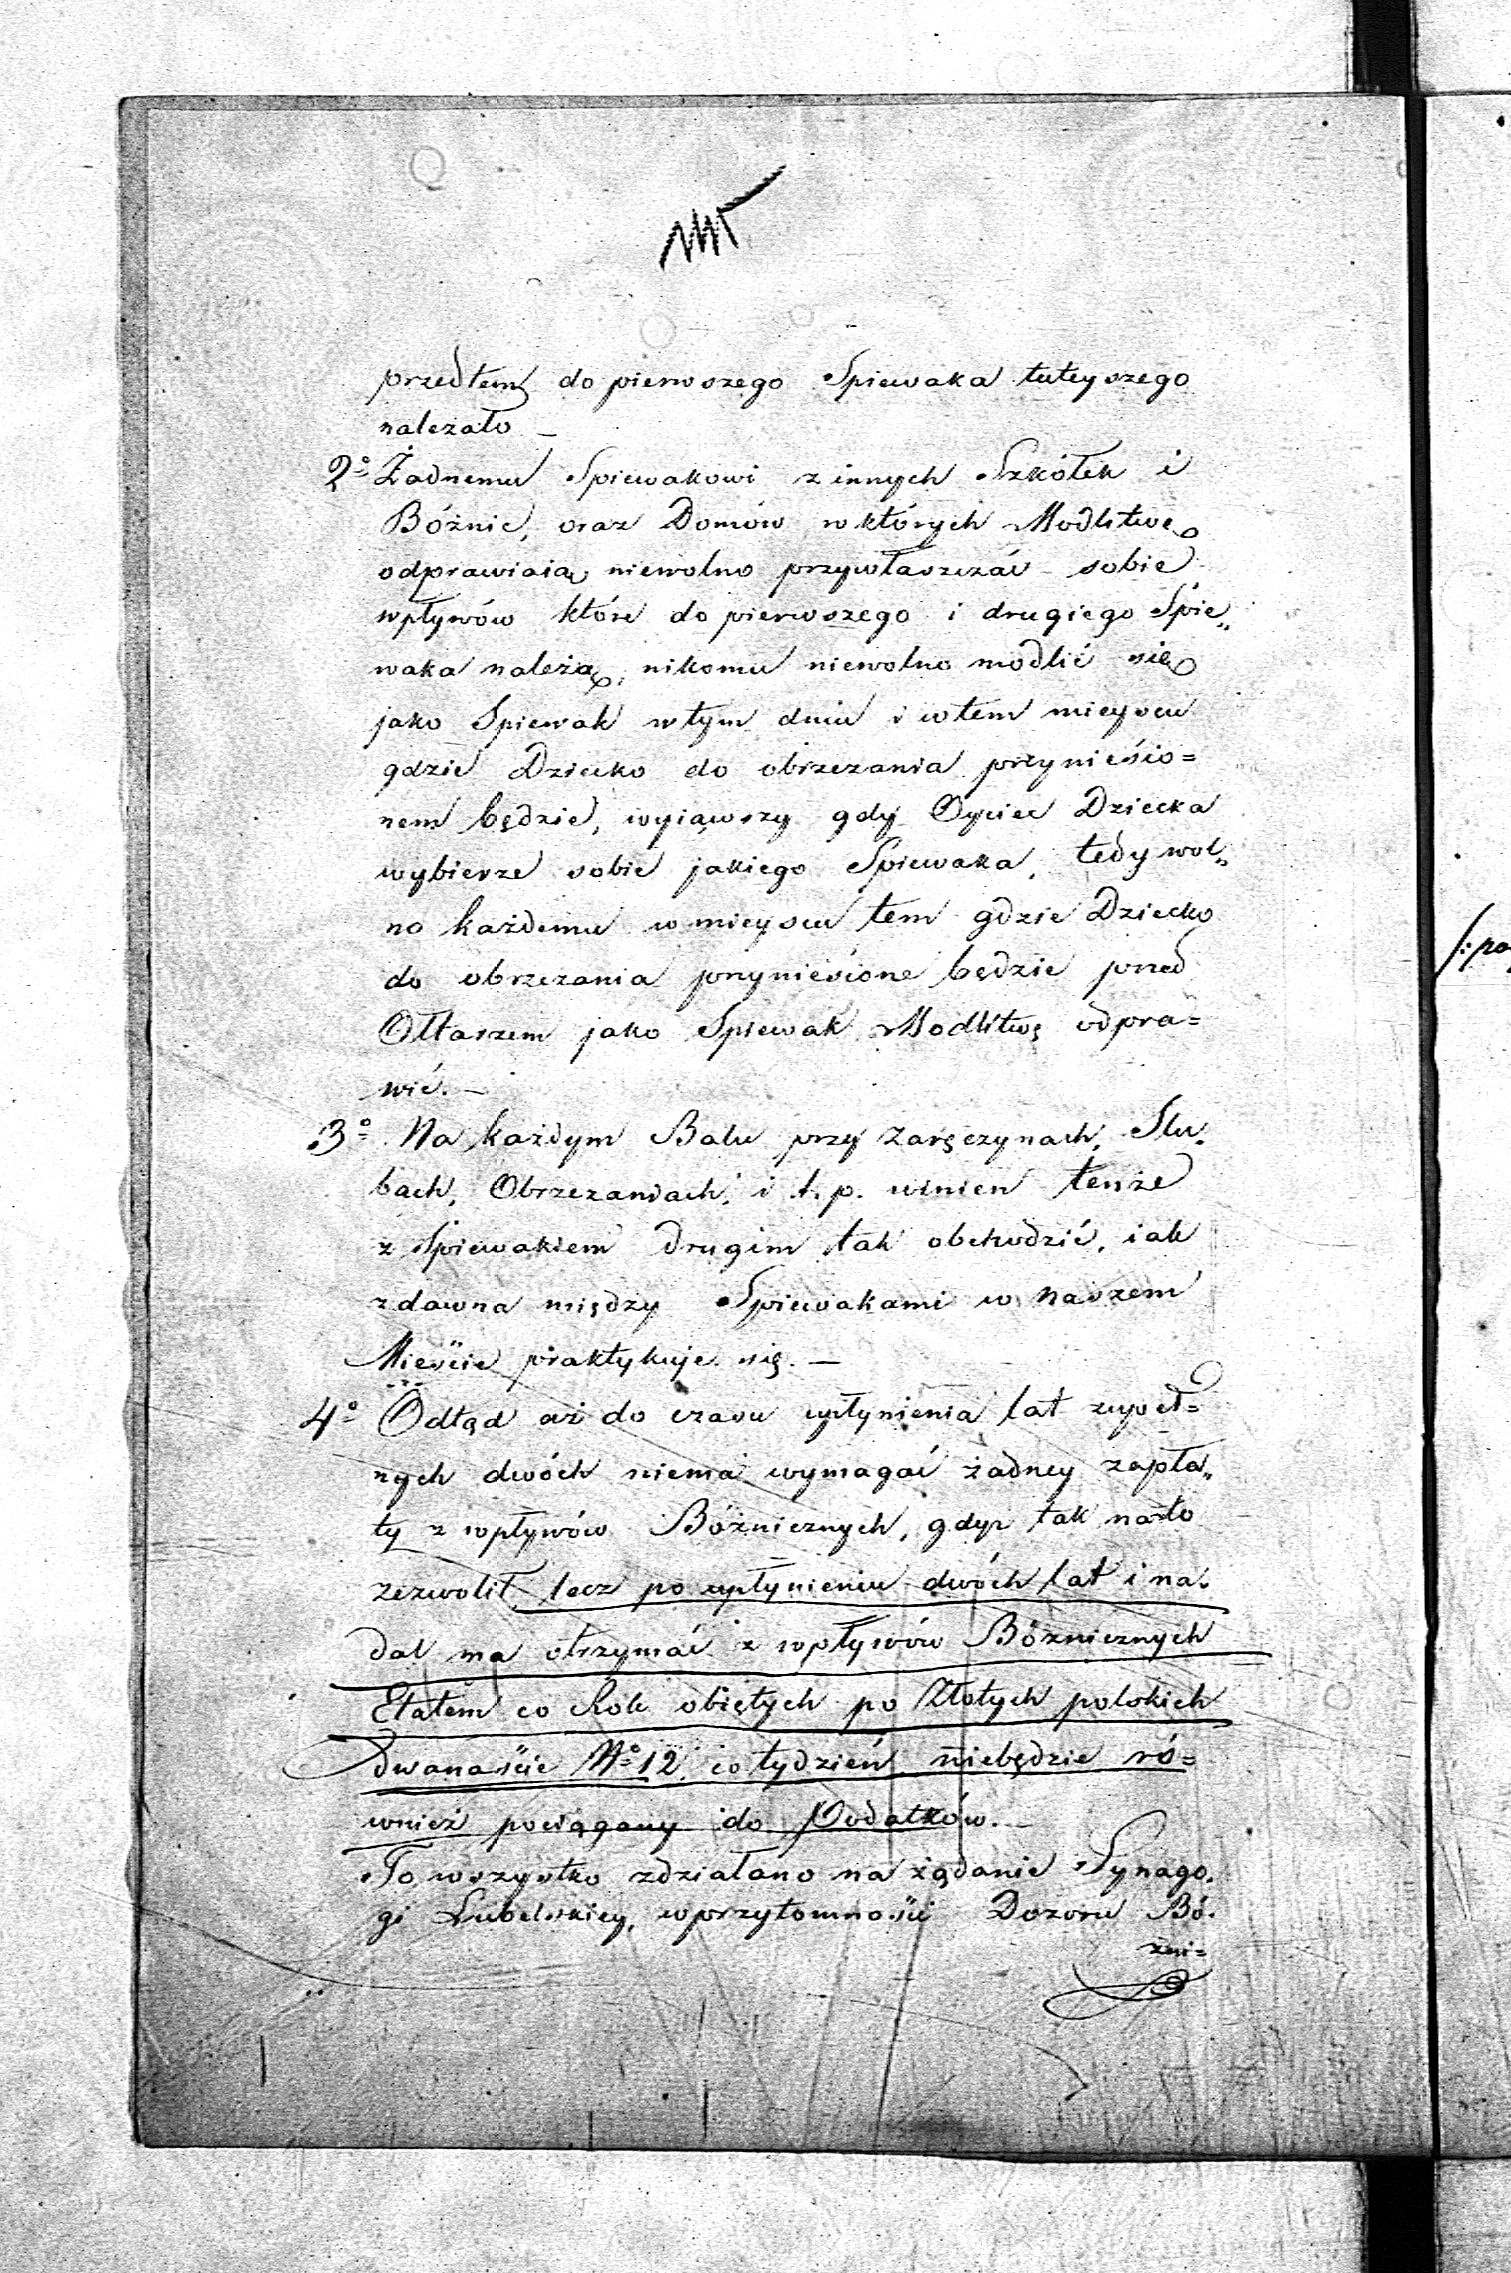 przedtem do pierwszego Spiewaka tuteyszego
należało _
2º Żadnemu Spiewakowi z innych Szkółek i
Bóżnic, oraz Domów w których Modlitwę
odprawiaią, niewolno przywłaszczać sobie
wpływów które do pierwszego i drugiego Śpie„
waka należą, nikomu niewolno modlić się
jako Spiewak w tym dniu i w tem mieyscu
gdzie Dziecko do obrzezania przynieśio=
nem będzie, wyiąwszy gdy Oyciec Dziecka
wybierze sobie jakiego Spiewaka, tedy wol„
no każdemu w mieyscu tem gdzie Dziecko
do obrzezania przyniesione będzie przed
Ołtarzem jako Spiewak Modlitwę odpra=
wić. —
3º Na każdym Balu przy Zaręczynach, Slu.
bach, Obrzezaniach, i t. p. winien tenże
z Spiewakiem drugim tak obchodzić, iak
zdawna między Spiewakami w naszem
Mieście praktykuje się. —
4º Odtąd aż do czasu upłynienia lat zupeł=
nych dwóch niema wymagać żadney zapła„
ty z wpływów Bóżnicznych, gdyż tak na to
zezwolił, lecz po upłynieniu dwóch lat i na.
dal ma otrzymać z wpływów Bóżnicznych
Etatem co Rok obiętych po Złotych polskich
dwanaście Nº 12 co tydzień, niebędzie ró=
wnież pociągany do Podatków. —
To wszystko zdziałano na żądanie Synago.
gi Lubelskiey, w przytomności Dozoru Bó.
zni=
/: po